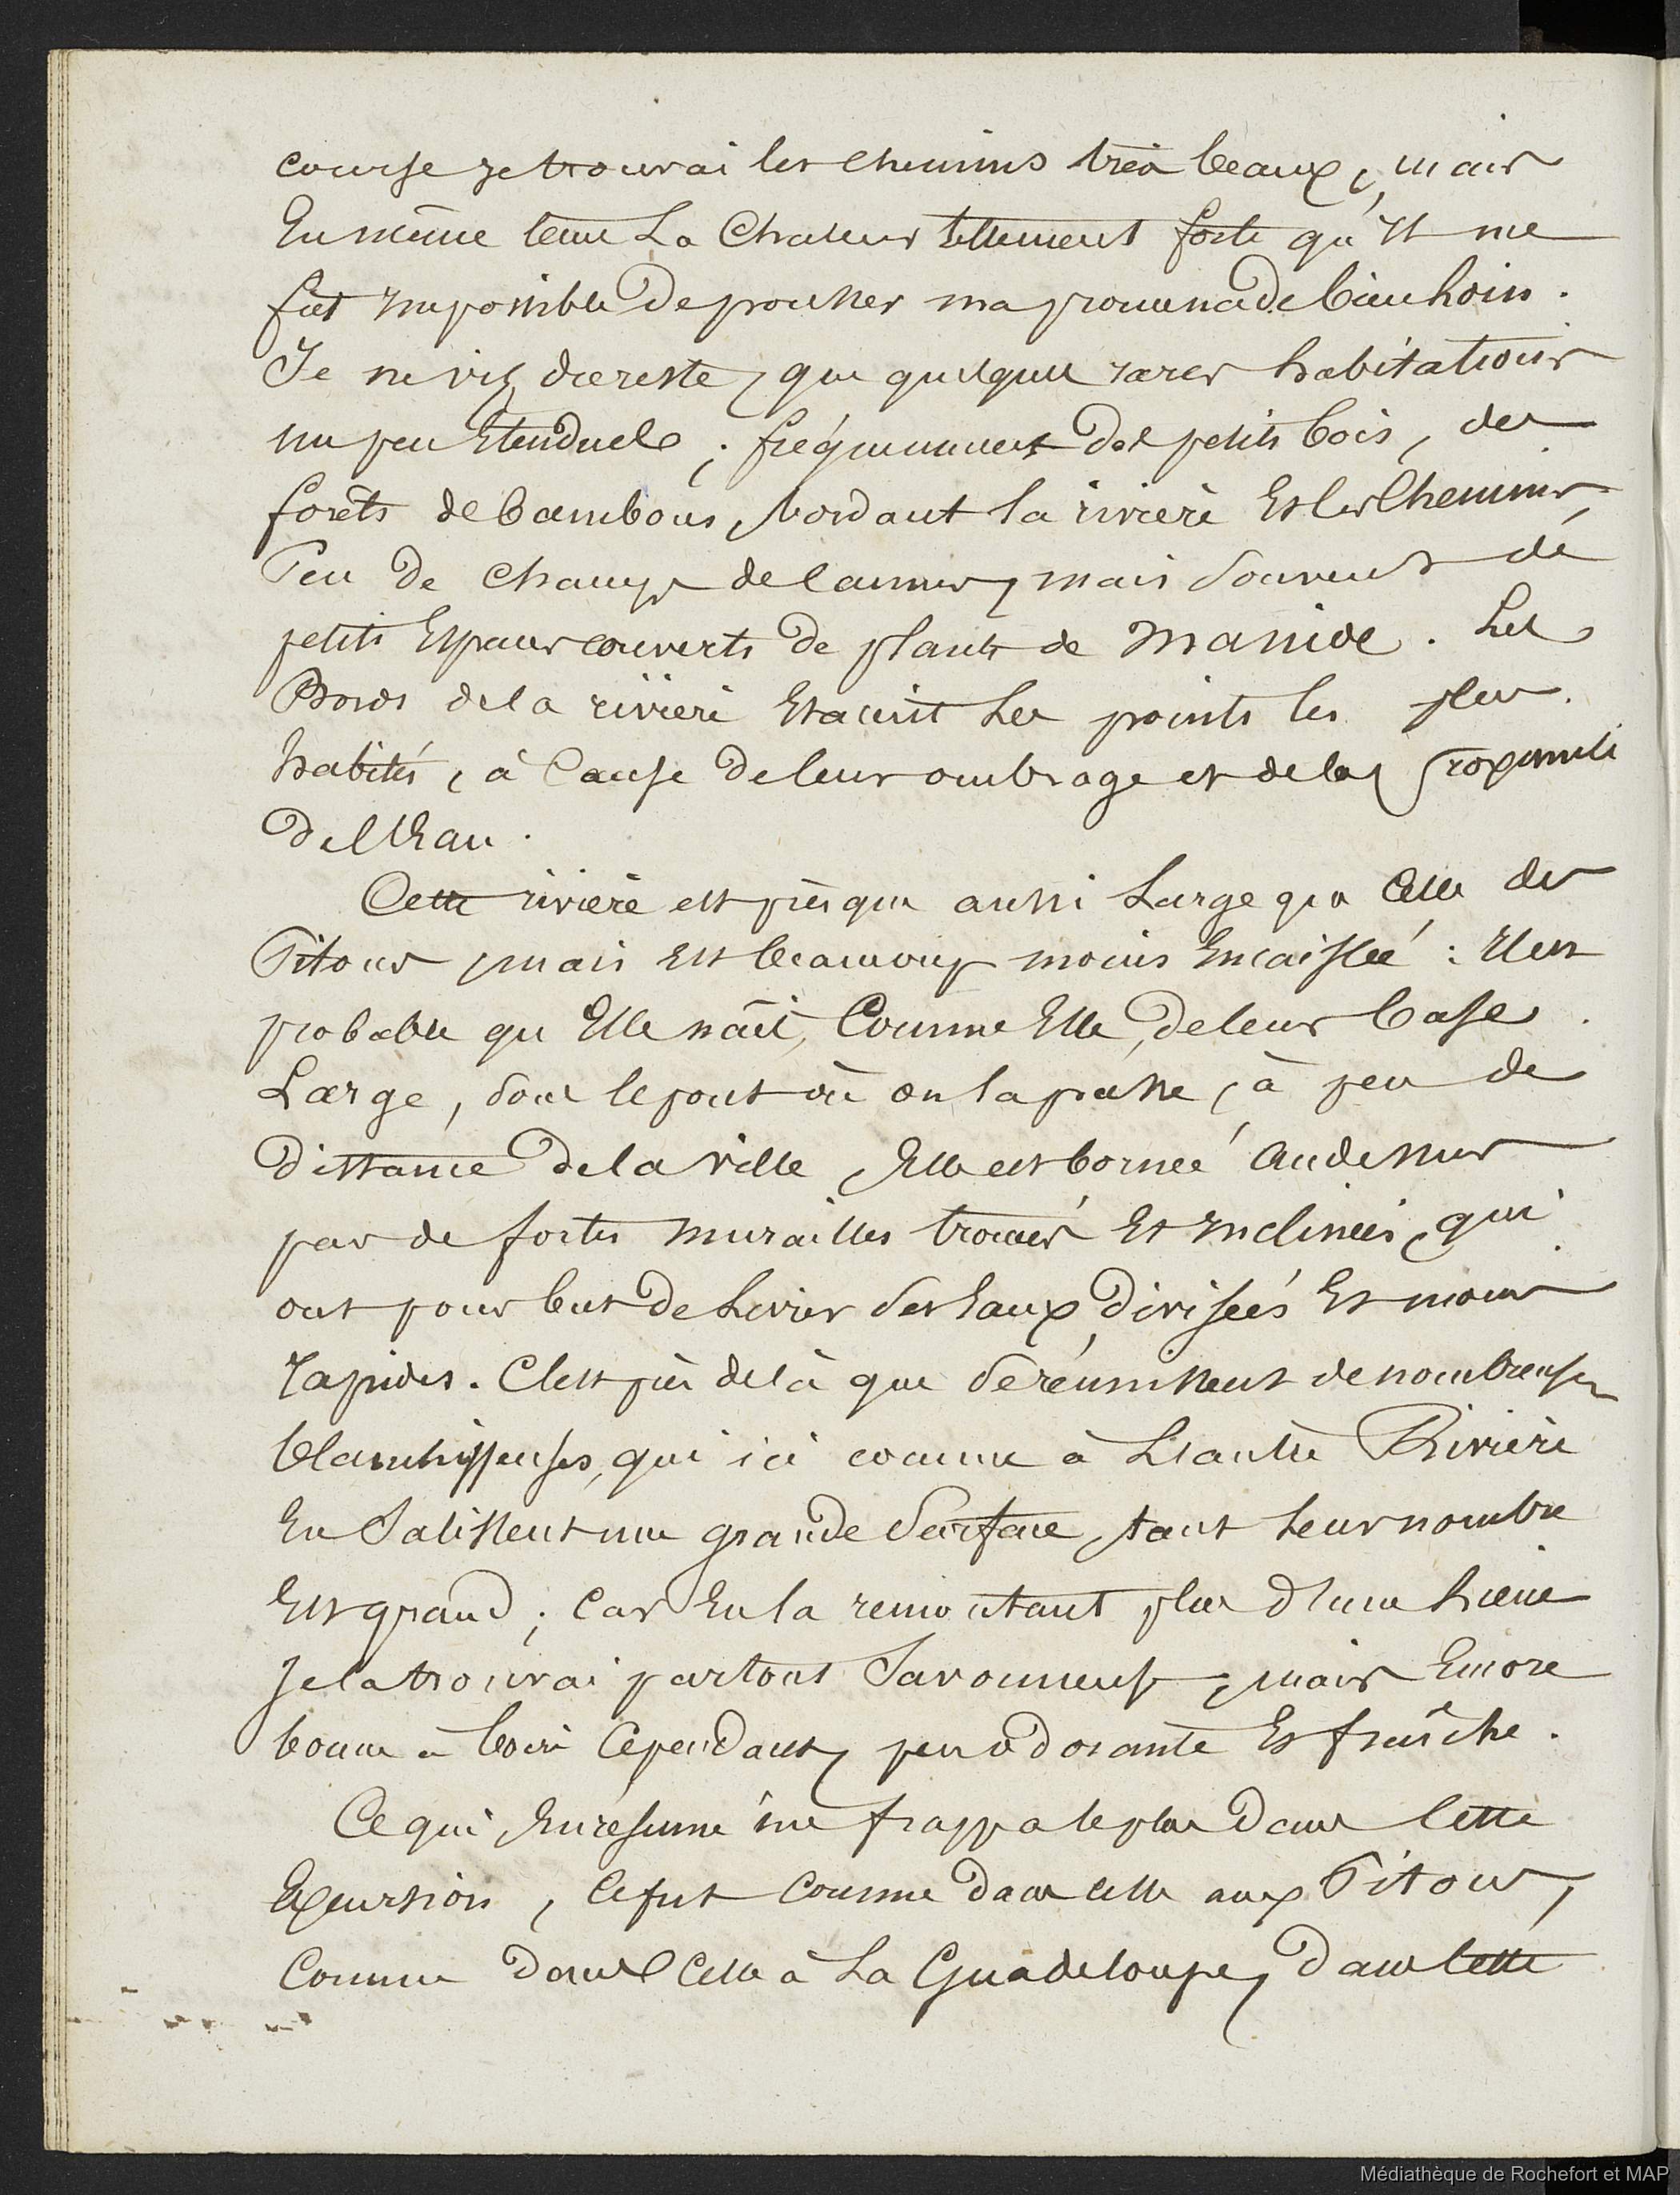 course je trouvai les chemins très beaux, mais
En même tems La Chaleur tellement forte qu'Il me
fut Impossible de pousser ma promenade bien loin.
Je ne vis, du reste, que quelques rares habitations
un peu Etendues ; fréquemment des petits bois, des
forêts de bambous, bordant la rivière Et les Chemins,
Peu de champs de cannes, mais souvent de
petits Espaces couverts de plants de Manioc. Les
Bords de la rivière Etaient Les points les plus
habités, à Cause de leur ombrage et de la proximité
de l'Eau.
Cette rivière est presque aussi Large que Celle des
Pitons, mais Est beaucoup moins Encaissée : Il est
probable qu'Elle naît, Comme Elle, de leur base.
Large, sous le pont où on la passe, à peu de
Distance de la ville, Elle est bornée Au dessus
par de fortes murailles trouées Et Inclinées, qui
ont pour but de Livrer des Eaux divisées Et moins
rapides. C'est près de là que se réunissent de nombreuses
blanchisseuses, qui ici comme à L'autre Rivière
En Salissent une grande Surface, tant Leur nombre
Est grand ; Car En la remontant plus d'une Lieue
Je la trouvai partout Savonneuse, mais Encore
bonne à boire Cependant, peu odorante Et fraîche.
Ce qui En résumé me frappa le plus Dans Cette
Excursion, Ce fut Comme dans celle aux Pitons,
Comme Dans Celle à La Guadeloupe, Dans Cette
Médiathèque de Rochefort et MAP